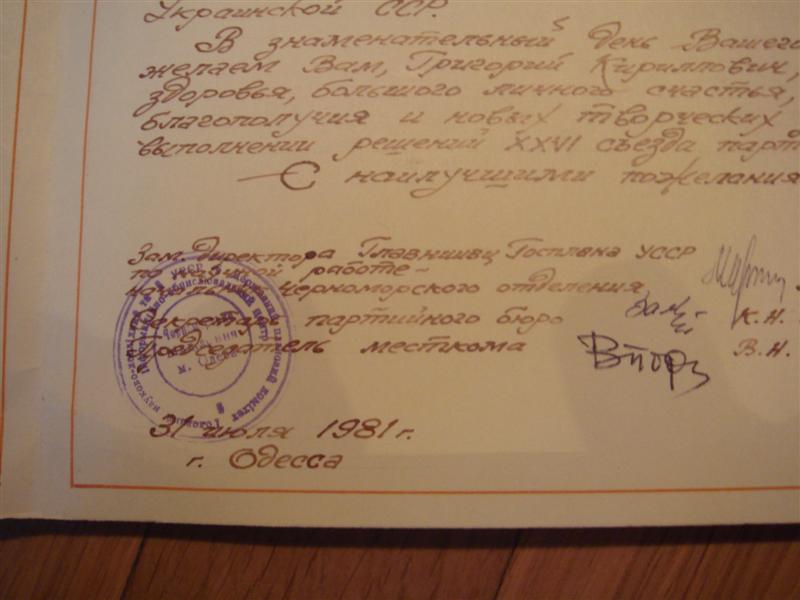 Украинской ССР.
В знаменательный день Вашего
желаем Вам, Григорий Кириллович,
здоровья, большого личного счастья,
благополучия и новых творческих
выполнении решений XXVI съезда парт
С наилучшими пожелания
Зам. директора Главнивц Госплана УССР
по научной работе -
Черноморского отделения
Секретарь партийного бюро К. Н.
Председатель месткома В. Н.
31 июля 1981 г.
г. Одесса